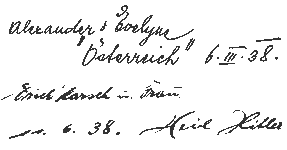 Alexander & Evelyne
"Österreich" 6.III.38.
Erich Karsch u. Frau
6. 38. Heil Hitler